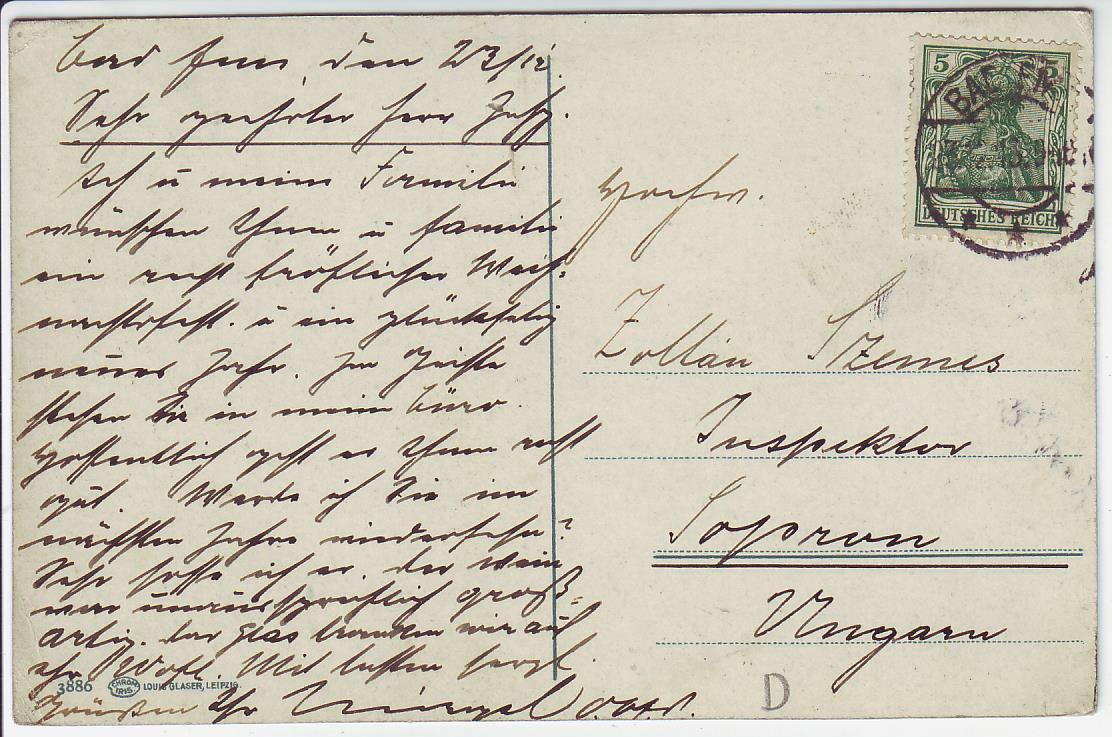 Bad Ems, den 23/12.
Sehr geehrter Herr
Ich u meine Familie
wünschen Ihnen u Familie
ein recht fröhliches Weih-
nachtsfest. u ein glückselig
neues Jahr. Im Geiste
stehen Sie in mein Büro.
Hoffentlich geht es Ihnen recht
gut. Werde ich Sie im
nächsten Jahre wiedersehn?
Sehr hoffe ich es. der Wein
war unaussprechlich groß-
artig. das Glas tranken wir auf
ihr Wohl. Mit besten herzl.
Grüßen Ihr
Hochw.
Zoltán Szemes
Inspektor
Sopron
Ungarn
5 5
DEUTSCHES REICH
3886 CHROM IRIS LOUIS GLASER, LEIPZIG.
D